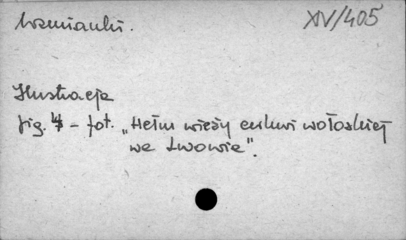 Wzmianki.
XIV/405
Ilustracja
fig. 4 – fot. „Hełm wieży cerkwi wołoskiej
we Lwowie".